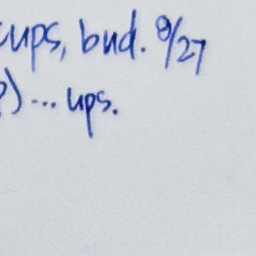 cups, bud. 9/27
?) ... ups.